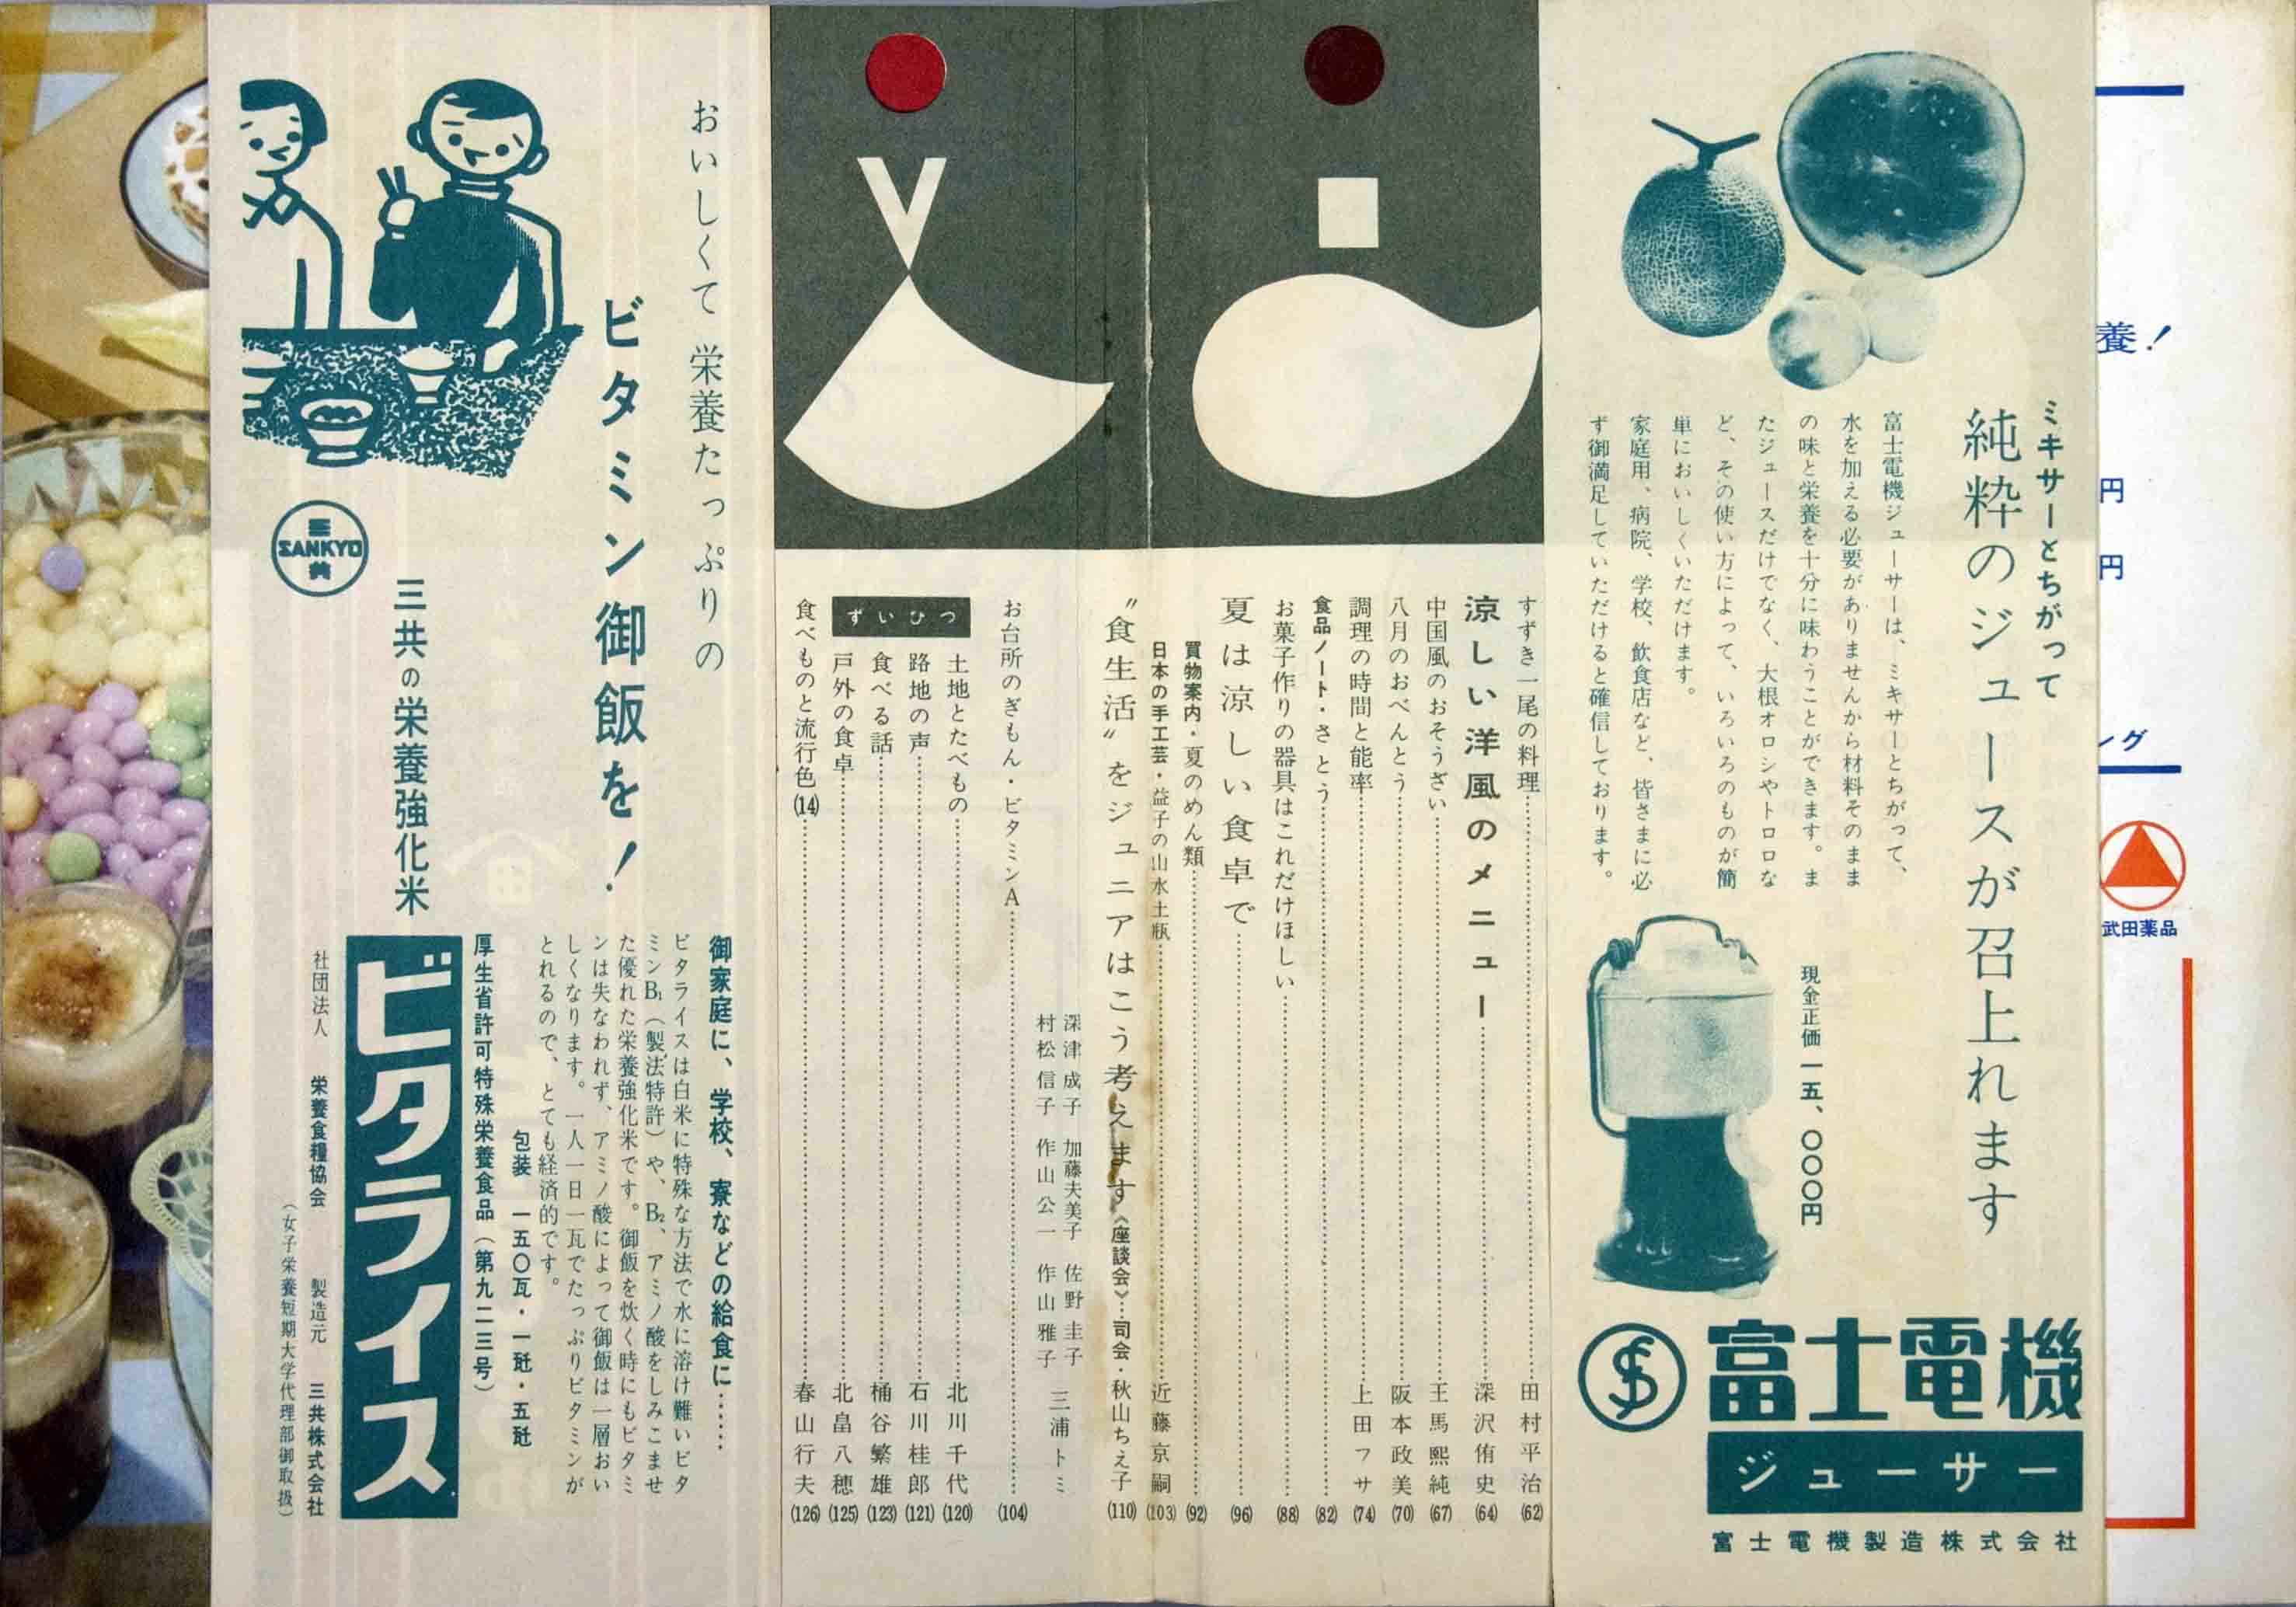 養!
円
円
ング
武田薬品
ミキサーとちがって
純粋のジュースが召上れます
富士電機ジューサーは、ミキサーとちがって、
水を加える必要がありませんから材料そのまま
の味と栄養を十分に味わうことができます。ま
たジュースだけでなく、大根オロシやトロロな
ど、その使い方によって、いろいろのものが簡
単においしくいただけます。
家庭用、病院、学校、飲食店など、皆さまに必
ず御満足していただけると確信しております。
現金正価 一五、〇〇〇円
富士電機
ジューサー
富士電機製造株式会社
すずき一尾の料理……田村平治(62)
涼しい洋風のメニュー……深沢侑史(64)
中国風のおそうざい……王馬熙純(67)
八月のおべんとう……阪本政美(70)
調理の時間と能率……上田フサ(74)
食品ノート・さとう……(82)
お菓子作りの器具はこれだけほしい……(88)
夏は涼しい食卓で……(96)
買物案内・夏のめん類……(92)
日本の手工芸・益子の山水土瓶……近藤京嗣(103)
〝食生活〟をジュニアはこう考えます《座談会》…司会・秋山ちえ子(110)
深津成子 加藤夫美子 佐野圭子 三浦トミ
村松信子 作山公一 作山雅子
お台所のぎもん・ビタミンA……(104)
ずいひつ
土地とたべもの……北川千代(120)
路地の声……石川桂郎(121)
食べる話……桶谷繁雄(123)
戸外の食卓……北畠八穂(125)
食べものと流行色(14)……春山行夫(126)
おいしくて栄養たっぷりの
ビタミン御飯を!
三共
SANKYO
三共の栄養強化米
ビタライス
御家庭に、学校、寮などの給食に……
ビタライスは白米に特殊な方法で水に溶け難いビタ
ミンB₁(製法特許)や、B₂、アミノ酸をしみこませ
た優れた栄養強化米です。御飯を炊く時にもビタミ
ンは失なわれず、アミノ酸によって御飯は一層おい
しくなります。一人一日一瓦でたっぷりビタミンが
とれるので、とても経済的です。
包装 一五〇瓦・一瓩・五瓩
厚生省許可特殊栄養食品(第九二三号)
社団法人 栄養食糧協会 製造元 三共株式会社
(女子栄養短期大学代理部御取扱)